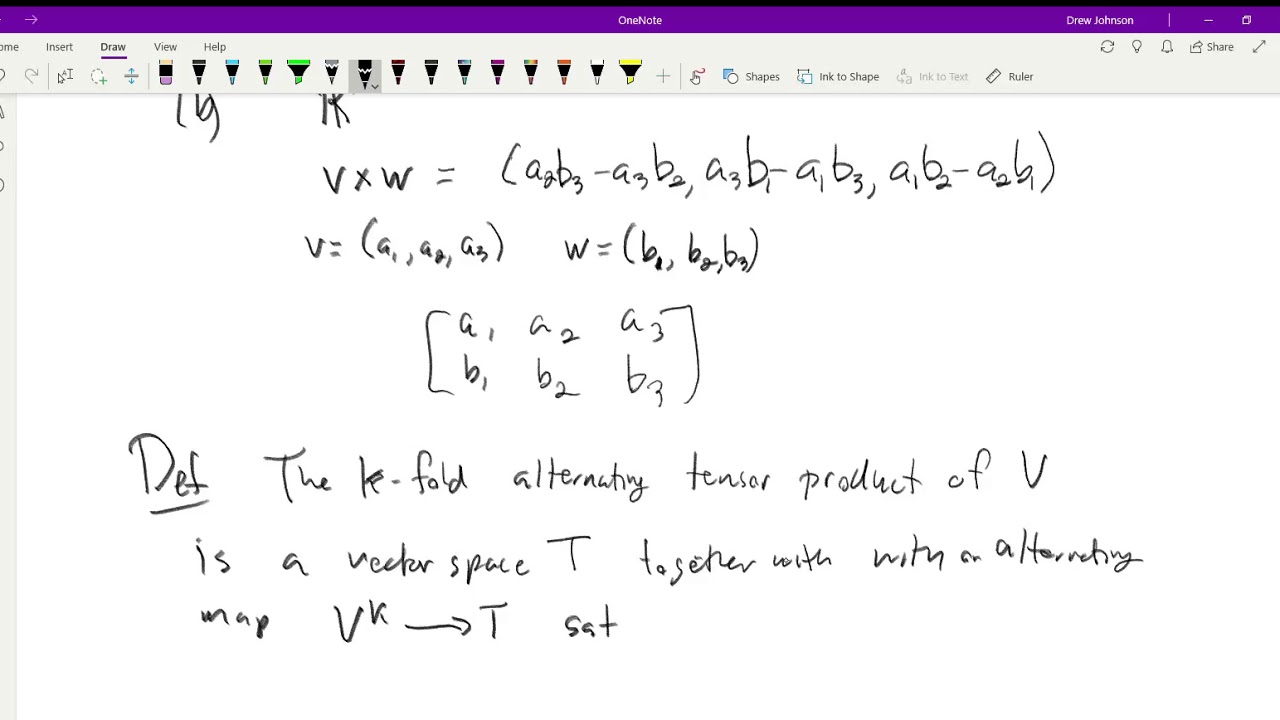 OneNote
Drew Johnson
Insert Draw View Help
Share
Shapes Ink to Shape Ink to Text Ruler
v×w = (a₂b₃-a₃b₂, a₃b₁-a₁b₃, a₁b₂-a₂b₁)
v=(a₁,a₂,a₃) w=(b₁, b₂,b₃)
a₁ a₂ a₃
b₁ b₂ b₃
Def The k-fold alternating tensor product of V
is a vector space T together with with an alternating
map Vᵏ → T sat